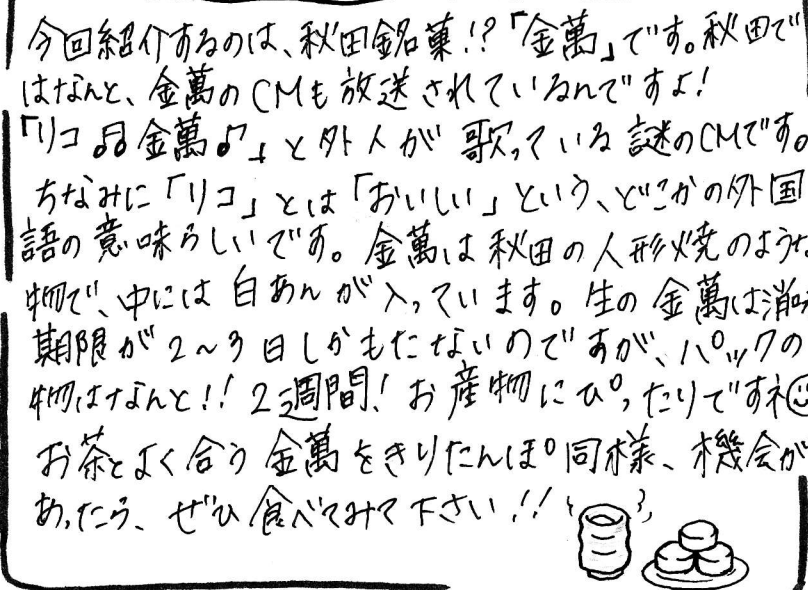 今回紹介するのは、秋田銘菓!?「金萬」です。秋田で
はなんと、金萬のCMも放送されているんですよ!
「リコ♫金萬♫」と外人が歌っている謎のCMです。
ちなみに「リコ」とは「おいしい」という、どこかの外国
語の意味らしいです。金萬は秋田の人形焼のような
物で、中には白あんが入っています。生の金萬は消味
期限が2〜3日しかもたないのですが、パックの
物はなんと!!2週間!お産物にぴったりですネ☺
お茶とよく合う金萬をきりたんぽ同様、機会が
あったら、ぜひ食べてみて下さい!!